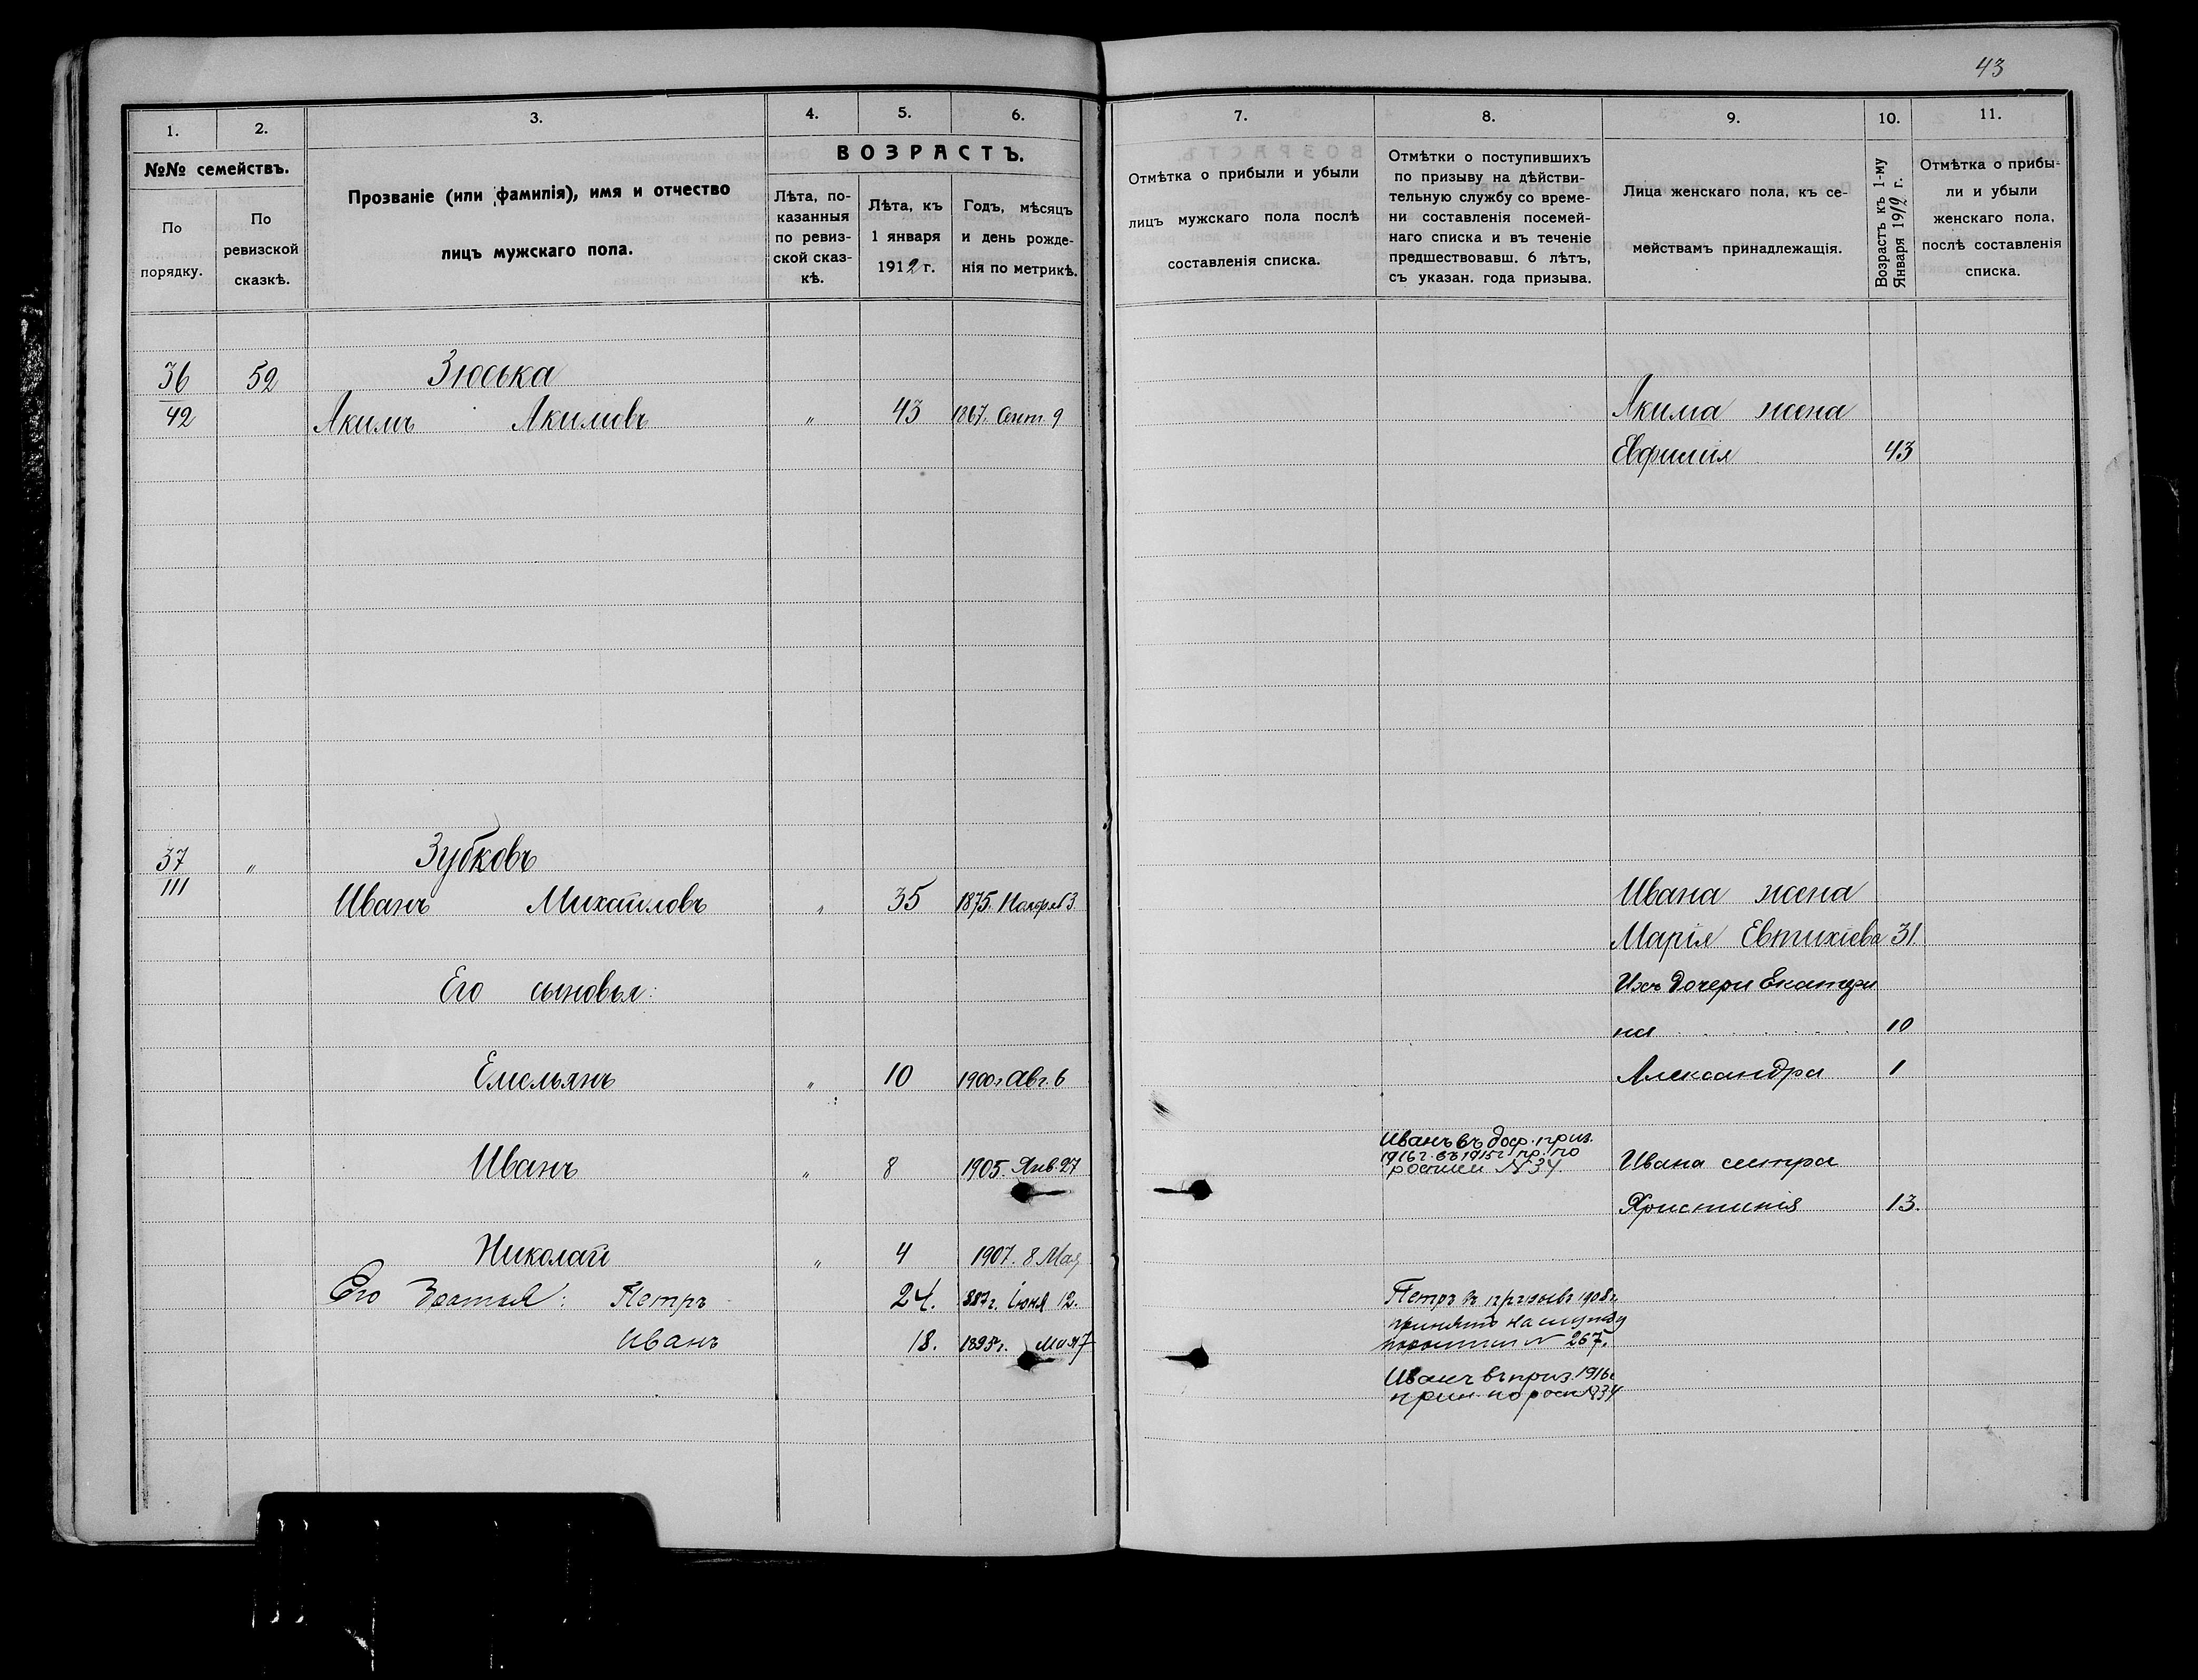 43
1.
2.
3.
4.
5.
6.
№№ семействъ.
По порядку.
По ревизской сказкѣ.
Прозваніе (или фамилія), имя и отчество
лицъ мужскаго пола.
ВОЗРАСТЪ.
Лѣта, по-
казанныя
по ревиз-
ской сказ-
кѣ.
Лѣта, къ
1 января
1912 г.
Годъ, мѣсяцъ
и день рожде-
нія по метрикѣ.
7.
8.
9.
10.
11.
Отмѣтка о прибыли и убыли
лицъ мужскаго пола послѣ
составленія списка.
Отмѣтки о поступившихъ
по призыву на дѣйстви-
тельную службу со време-
ни составленія посемей-
наго списка и въ теченіе
предшествовавш. 6 лѣтъ,
съ указан. года призыва.
Лица женскаго пола, къ се-
мействамъ принадлежащія.
Возрастъ къ 1-му
Января 1912 г.
Отмѣтка о прибы-
ли и убыли
женскаго пола,
послѣ составленія
списка.
36 52 Зюська
42 Акимъ Акимовъ " 43 1867. Сент. 9 Акима жена
Евфимія 43
37 " Зубковъ
111 Иванъ Михайловъ " 35 1875. Ноября 3 Ивана жена
Марія Евтихіева 31.
Его сыновья: Ихъ дочери Екатери
на 10
Емельянъ " 10 1900 г Авг. 6 Александра 1
Иванъ въ доср. приз.
1916 г. въ 1915 г. пр. по
росписи № 34.
Иванъ " 8 1905. Янв. 27 Ивана сестра
Христинія 13.
Николай " 4 1907. 8 Мая
Его братья: Петръ 24. 887 г. Іюня 12. Петръ в призывъ 1908 г.
принятъ на службу
Иванъ 18. 1895 г. Мая 7 по росписи № 267.
Иванъ въ приз. 1916 г.
прин. по росп № 34